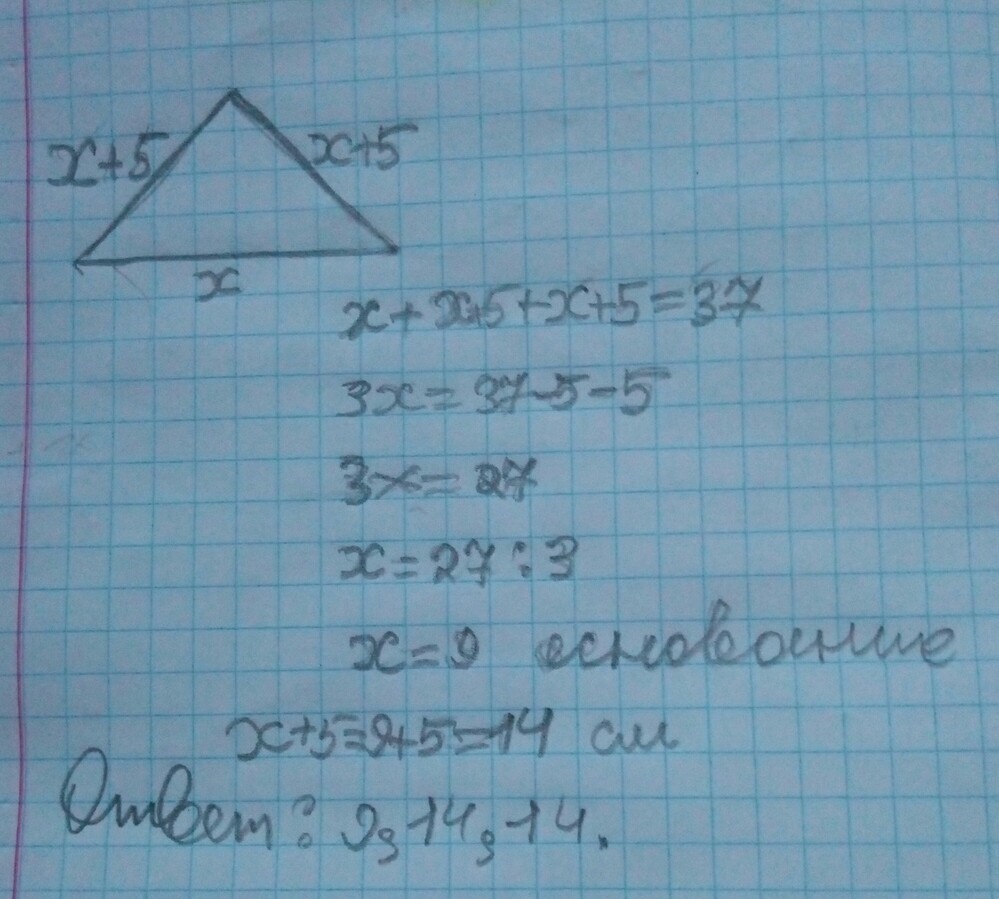 x+5 x+5
x
x+x+5+x+5=37
3x=37-5-5
3x=27
x=27:3
x=9 основание
x+5=9+5=14 см
Ответ: 9, 14, 14.